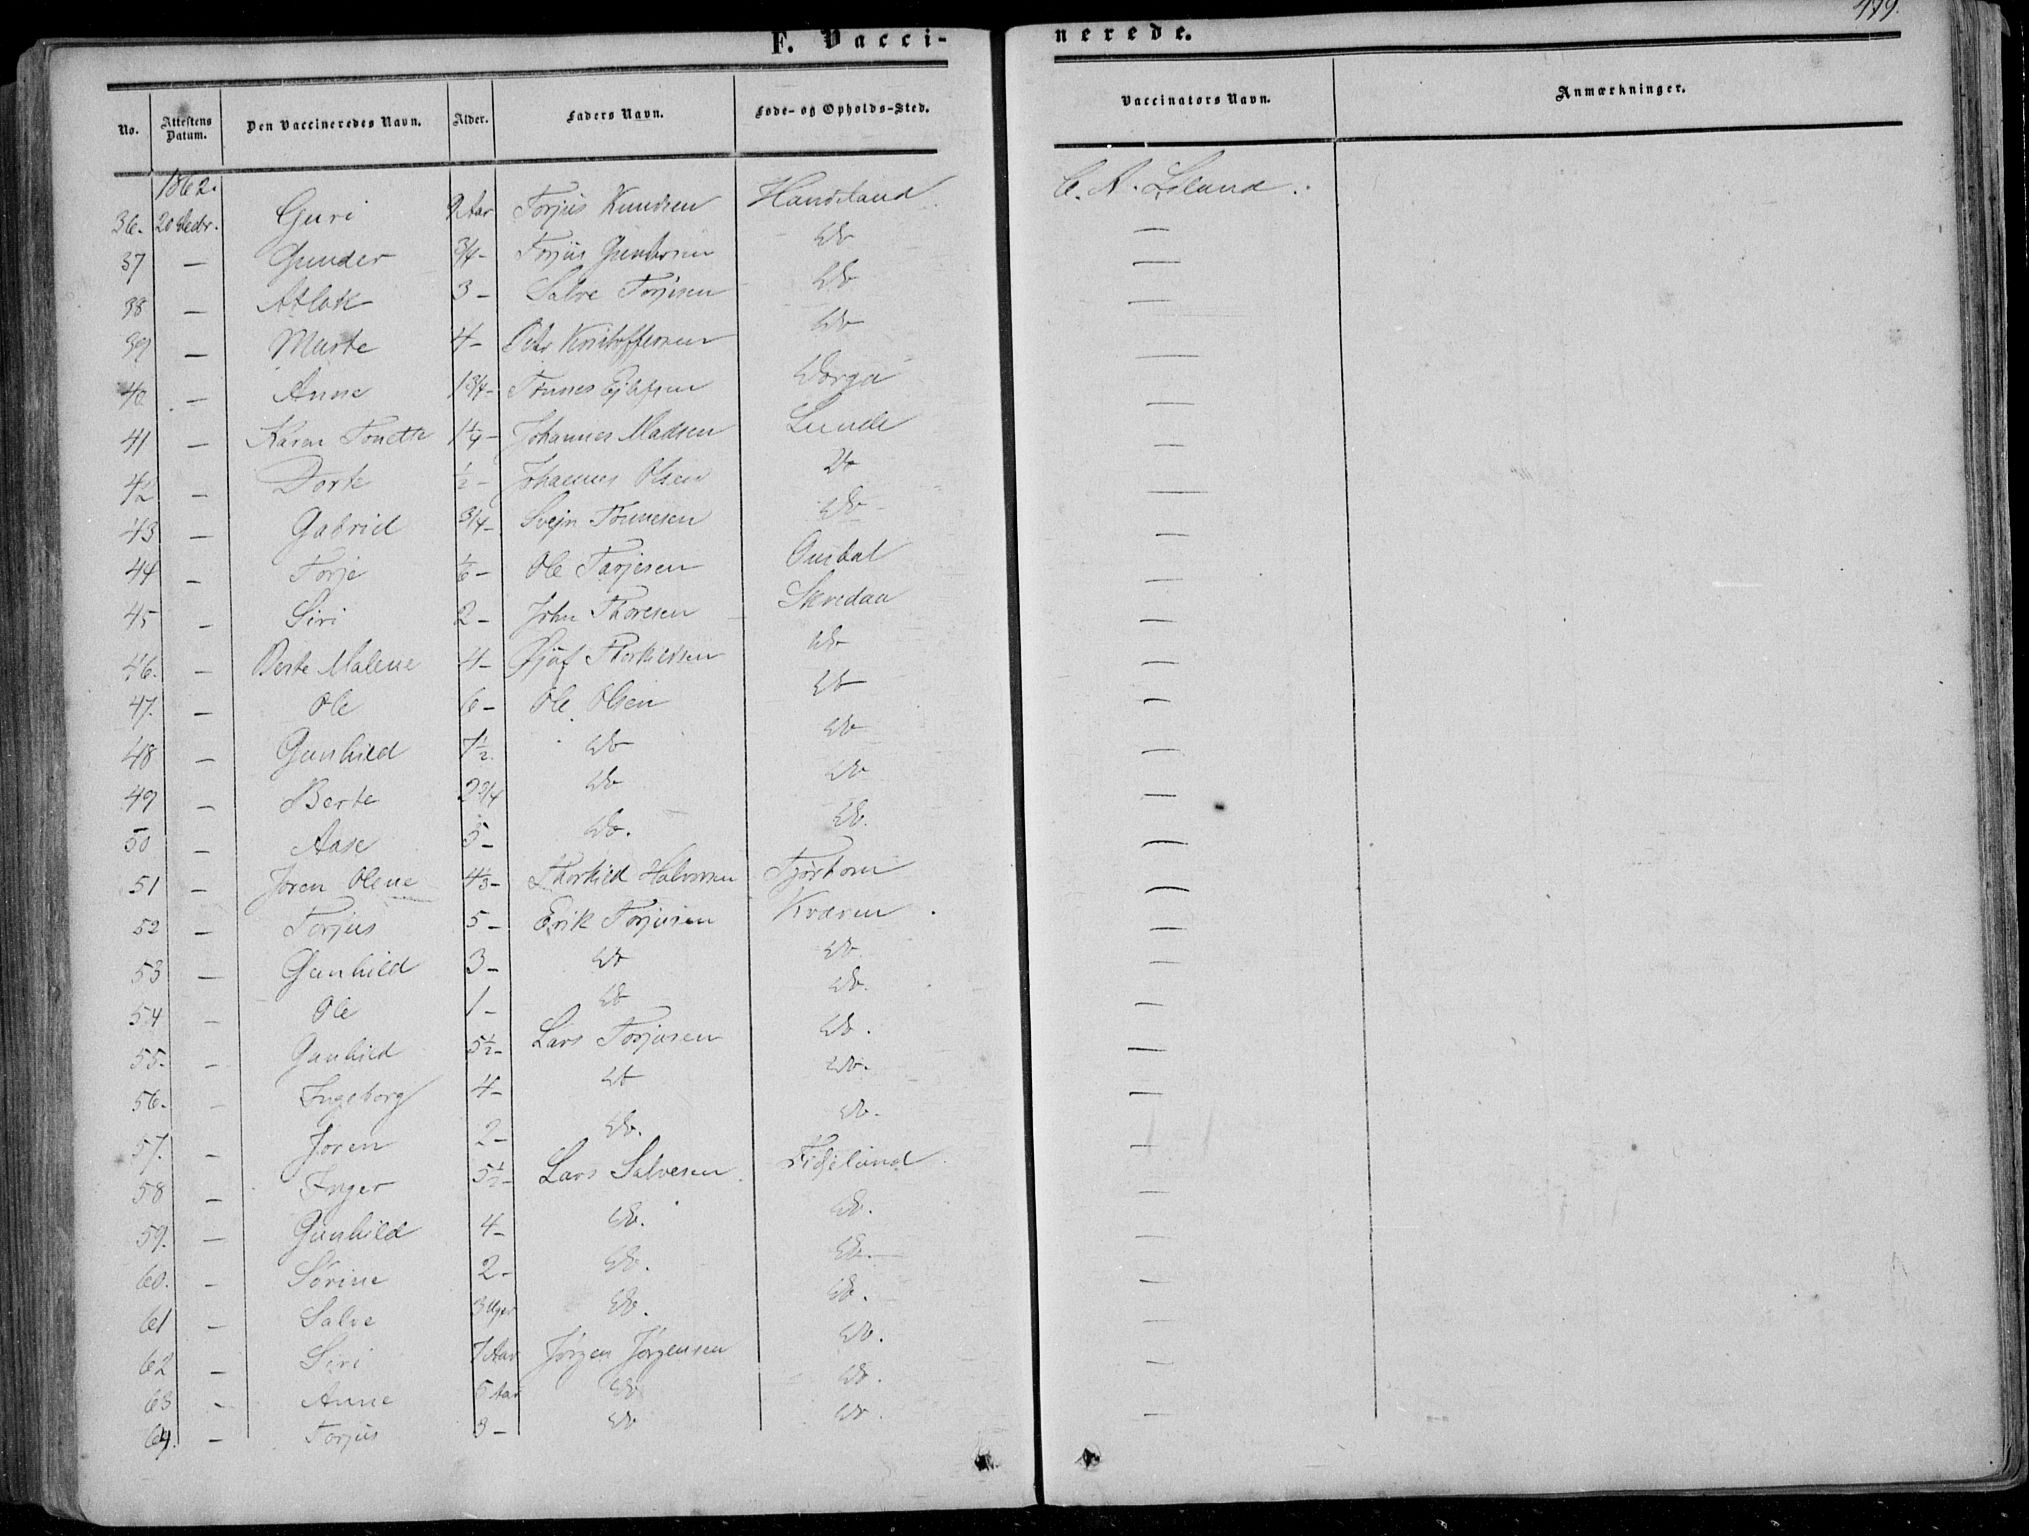 479.
F. Vacci- nerede.
No. Attestens Datum. Den Vaccineredes Navn. Alder. Faders Navn. Føde- og Opholds-Sted. Vaccinators Navn. Anmærkninger.
1862.
36. 20 Guri 9 Aar Torjus Knudsen Handeland C. A.
37 — Gunder 3/4 - Torjus Gundersen Do —
38 — Atlak 3 - Salve Torjusen Do —
39 — Marte 4 - Peder Kristoffersen Do —
40 — Anne 1 3/4 - Tønnes Ejelfsen Dorga —
41 — Karen Tonette 1 1/4 - Johannes Madsen Lunde —
42 — Dorte 1/2 - Johannes Olsen Do —
43 — Gabriel 3/4 - Svejn Tønnesen Do —
44 — Torje 1/6 - Ole Tarjesen Ousdal —
45 — Siri 2 - John Thoresen Skredaa —
46. — Berte Malene 4 - Thorkildsen Do —
47. — Ole 6 - Ole Olsen Do —
48 — Gunhild 7 1/2. Do Do —
49 — Berte 2 3/4 Do Do —
50 — Aase 5 - Do. Do. —
51 — Joren Olene 4 1/3 - Thorkild Halvorsen Tjørhom —
52 — Torjus 5 - Erik Torjusen Kvæven —
53 — Gunhild 3 - Do Do. —
54 — Ole 1 - Do Do. —
55. — Gunhild 5 1/2 - Lars Torjusen Do. —
56. — Ingeborg 4 - Do Do. —
57. — Joren 2 - Do. Do. —
58 — Inger 5 1/2 - Lars Salvesen Fidjeland —
59. — Gunhild 4 - Do. Do. —
60. — Sørine 2 - Do. Do. —
61 — Salve 3 Uger Do. Do. —
62 — Siri 7 Aar Jørgen Jørgensen Do. —
63 — Anne 5 Aar Do Do. —
64. — Torjus 3 - Do Do. —